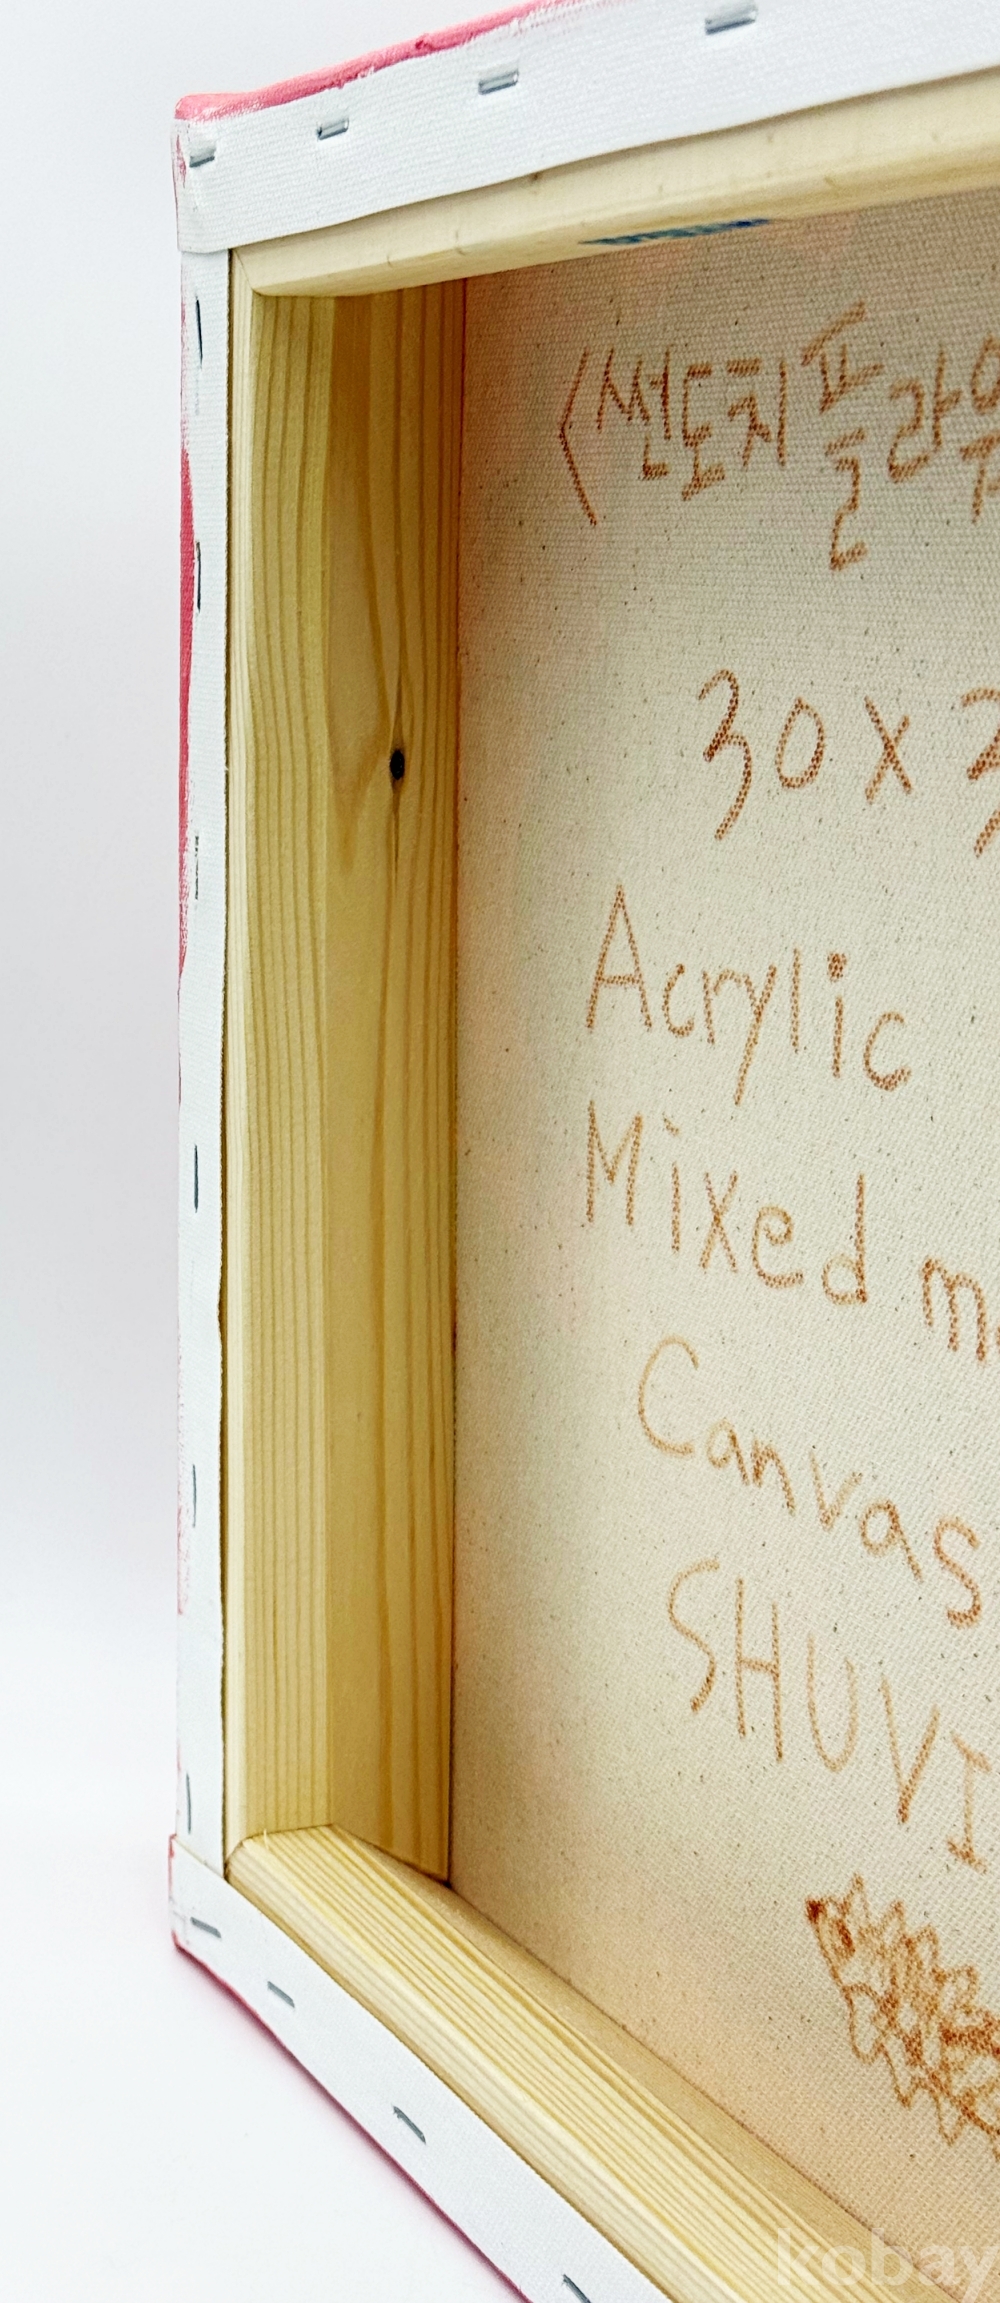 <썬도치플라워
30 x 3
Acrylic
Mixed m
Canvas
SHUVI
kobay